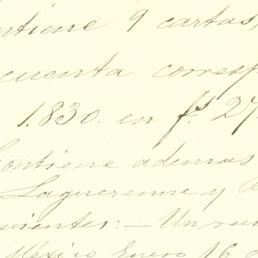 ontiene 9 cartas,
cuenta corresp
1.830. en fs. 27
Contiene ademas
Laguerenne y
uientes: — Un
México Enero 16 d